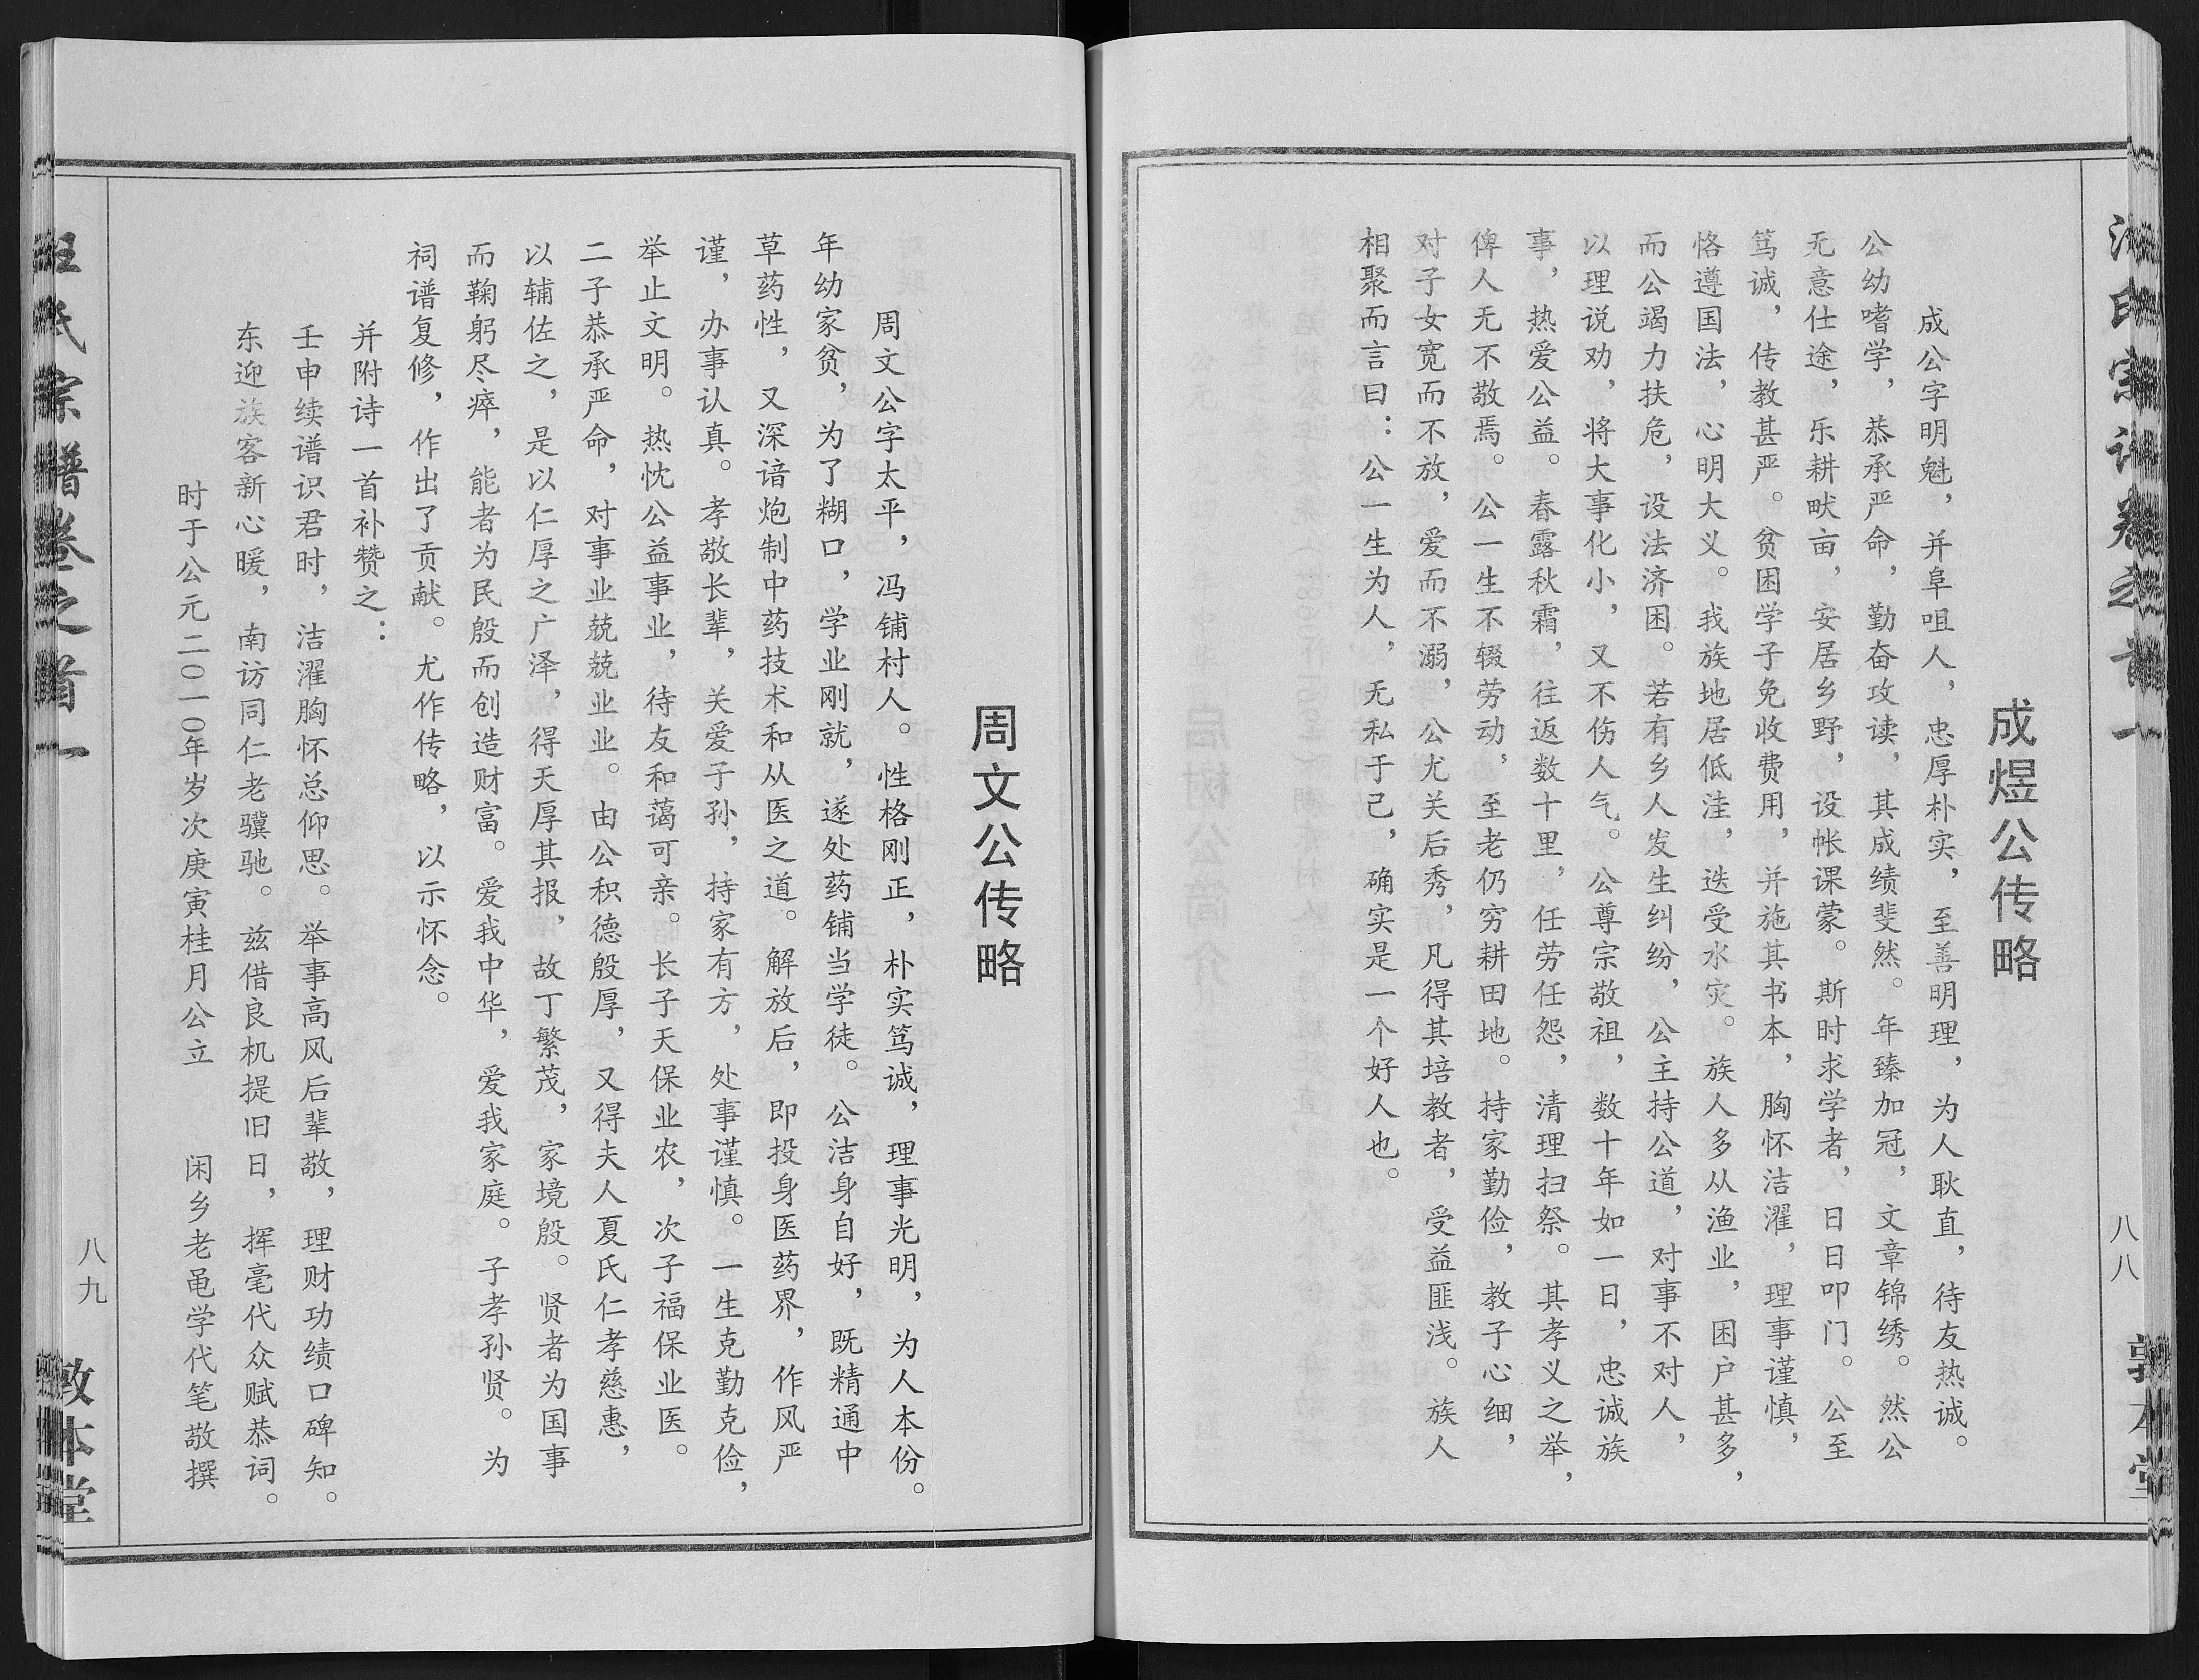 成煜公传略
成公字明魁，并阜咀人，忠厚朴实，至善明理，为人耿直，待友热诚。
公幼嗜学，恭承严命，勤奋攻读，其成绩斐然。年臻加冠，文章锦绣。然公
无意仕途，乐耕畎亩，安居乡野，设帐课蒙。斯时求学者，日日叩门。公至
笃诚，传教甚严。贫困学子免收费用，并施其书本，胸怀洁濯，理事谨慎，
恪遵国法，心明大义。我族地居低洼，迭受水灾。族人多从渔业，困户甚多，
而公竭力扶危，设法济困。若有乡人发生纠纷，公主持公道，对事不对人，
以理说劝，将大事化小，又不伤人气。公尊宗敬祖，数十年如一日，忠诚族
事，热爱公益。春露秋霜，往返数十里，任劳任怨，清理扫祭。其孝义之举，
俾人无不敬焉。公一生不辍劳动，至老仍穷耕田地。持家勤俭，教子心细，
对子女宽而不放，爱而不溺，公尤关后秀，凡得其培教者，受益匪浅。族人
相聚而言曰：公一生为人，无私于己，确实是一个好人也。
八八
周文公传略
周文公字太平，冯铺村人。性格刚正，朴实笃诚，理事光明，为人本份。
年幼家贫，为了糊口，学业刚就，遂处药铺当学徒。公洁身自好，既精通中
草药性，又深谙炮制中药技术和从医之道。解放后，即投身医药界，作风严
谨，办事认真。孝敬长辈，关爱子孙，持家有方，处事谨慎。一生克勤克俭，
举止文明。热忱公益事业，待友和蔼可亲。长子天保业农，次子福保业医。
二子恭承严命，对事业兢兢业业。由公积德殷厚，又得夫人夏氏仁孝慈惠，
以辅佐之，是以仁厚之广泽，得天厚其报，故丁繁茂，家境殷。贤者为国事
而鞠躬尽瘁，能者为民殷而创造财富。爱我中华，爱我家庭。子孝孙贤。为
祠谱复修，作出了贡献。尤作传略，以示怀念。
并附诗一首补赞之：
壬申续谱识君时，洁濯胸怀总仰思。举事高风后辈敬，理财功绩口碑知。
东迎族客新心暖，南访同仁老骥驰。兹借良机提旧日，挥毫代众赋恭词。
时于公元二〇一〇年岁次庚寅桂月公立　闲乡老黾学代笔敬撰
汪氏宗谱卷之首一
八九
敦本堂